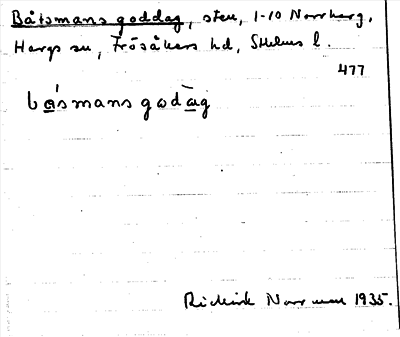 Båtsmans goddag, sten, 1-10 Norrberg,
Hargs sn, Frösåkers hd, Sthlms l.
477
bǻsmans godàg
Norrman 1935.